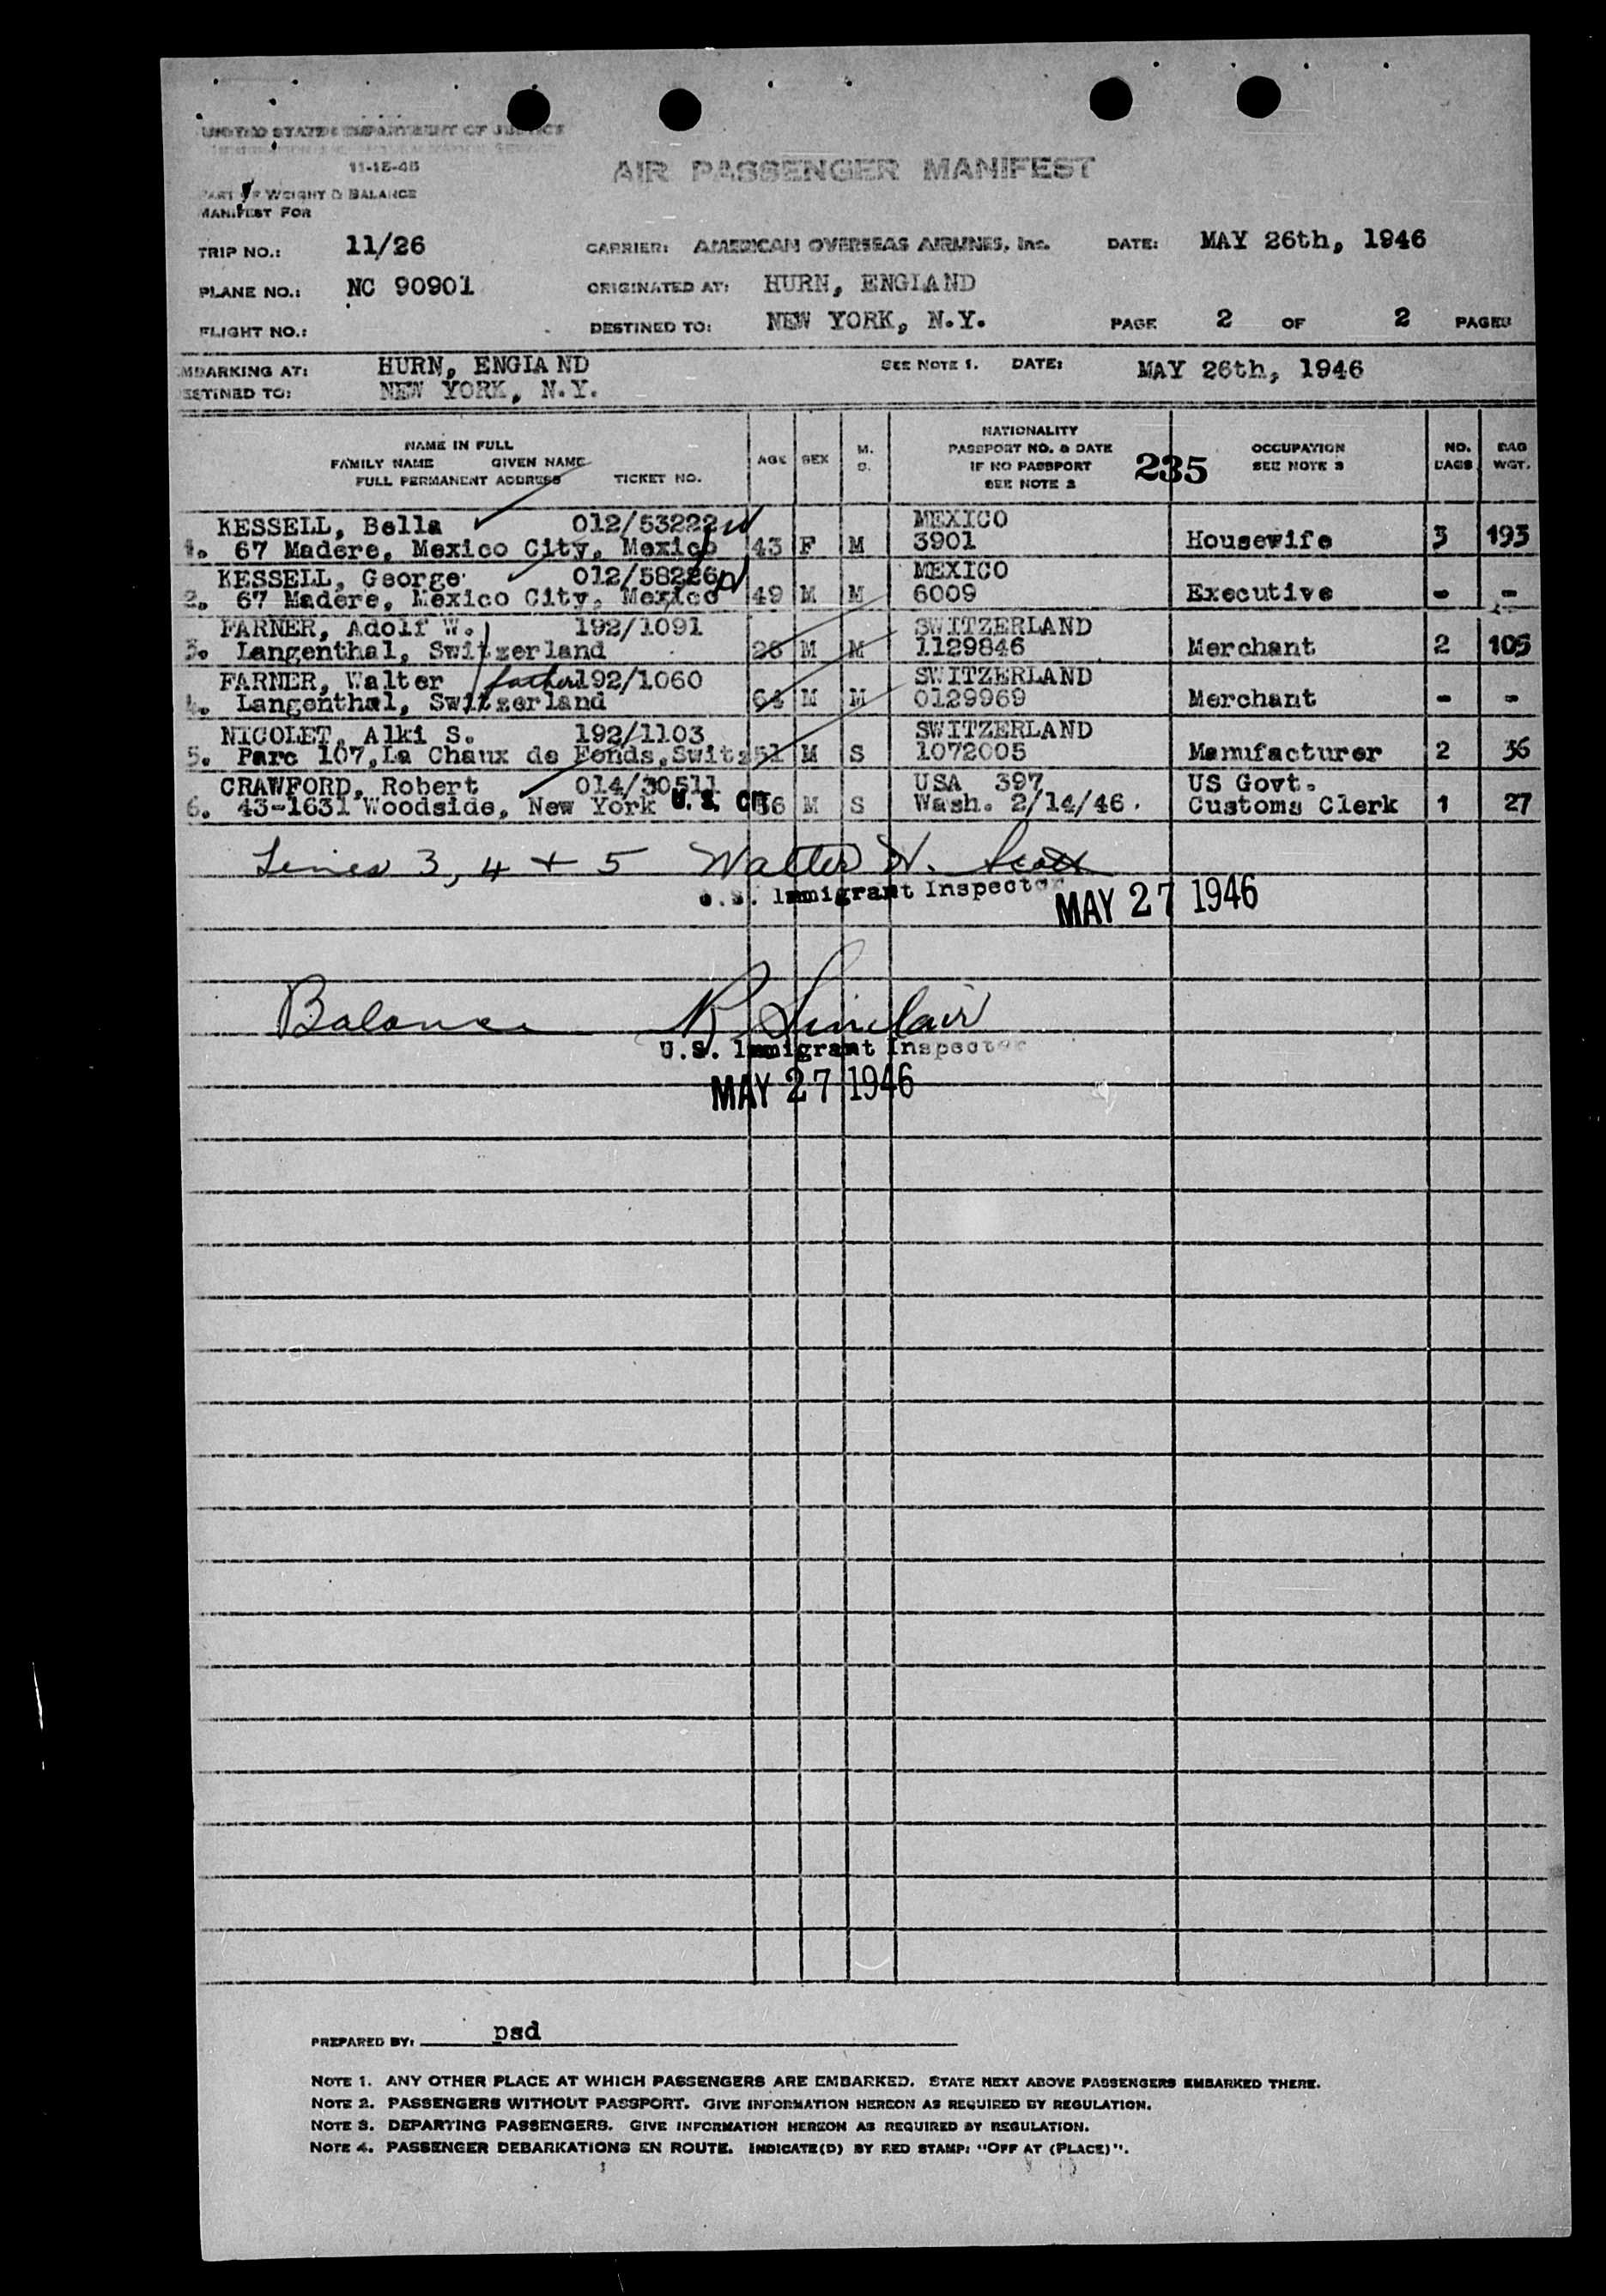 UNITED STATES DEPARTMENT OF JUSTICE
11-15-45
AIR PASSENGER MANIFEST
PART OF WEIGHT & BALANCE
MANIFEST FOR
TRIP NO.: 11/26 CARRIER: AMERICAN OVERSEAS AIRLINES, Inc. DATE: MAY 26th, 1946
PLANE NO.: NC 90901 ORIGINATED AT: HURN, ENGLAND
FLIGHT NO.: DESTINED TO: NEW YORK, N.Y. PAGE 2 OF 2 PAGES
MBARKING AT: HURN, ENGLAND SEE NOTE 1. DATE: MAY 26th, 1946
ESTINED TO: NEW YORK, N.Y.
NAME IN FULL
FAMILY NAME GIVEN NAME
FULL PERMANENT ADDRESS TICKET NO.
AGE SEX M. S.
NATIONALITY
PASSPORT NO. & DATE
IF NO PASSPORT
SEE NOTE 2
235
OCCUPATION
SEE NOTE 3
NO. BAGS
BAG WGT.
KESSELL, Bella 012/53222 MEXICO
1. 67 Madere, Mexico City, Mexico 43 F M 3901 Housewife 3 193
KESSELL, George 012/58226 MEXICO
2. 67 Madere, Mexico City, Mexico 49 M M 6009 Executive - -
FARNER, Adolf W. 192/1091 SWITZERLAND
3. Langenthal, Switzerland 26 M M 1129846 Merchant 2 105
FARNER, Walter father 192/1060 SWITZERLAND
4. Langenthal, Switzerland 64 M M 0129969 Merchant - -
NICOLET, Alki S. 192/1103 SWITZERLAND
5. Parc 107, La Chaux de Fonds, Switz 51 M S 1072005 Manufacturer 2 36
CRAWFORD, Robert 014/30511 USA 397 US Govt.
6. 43-1631 Woodside, New York U. S. CIT 36 M S Wash. 2/14/46. Customs Clerk 1 27
Lines 3, 4 + 5 Walter W. Scott
U.S. Immigrant Inspector
MAY 27 1946
Balance R Sinclair
U.S. Immigrant Inspector
MAY 27 1946
PREPARED BY: psd
NOTE 1. ANY OTHER PLACE AT WHICH PASSENGERS ARE EMBARKED. STATE NEXT ABOVE PASSENGERS EMBARKED THERE.
NOTE 2. PASSENGERS WITHOUT PASSPORT. GIVE INFORMATION HEREON AS REQUIRED BY REGULATION.
NOTE 3. DEPARTING PASSENGERS. GIVE INFORMATION HEREON AS REQUIRED BY REGULATION.
NOTE 4. PASSENGER DEBARKATIONS EN ROUTE. INDICATE(D) BY RED STAMP: "OFF AT (PLACE)".